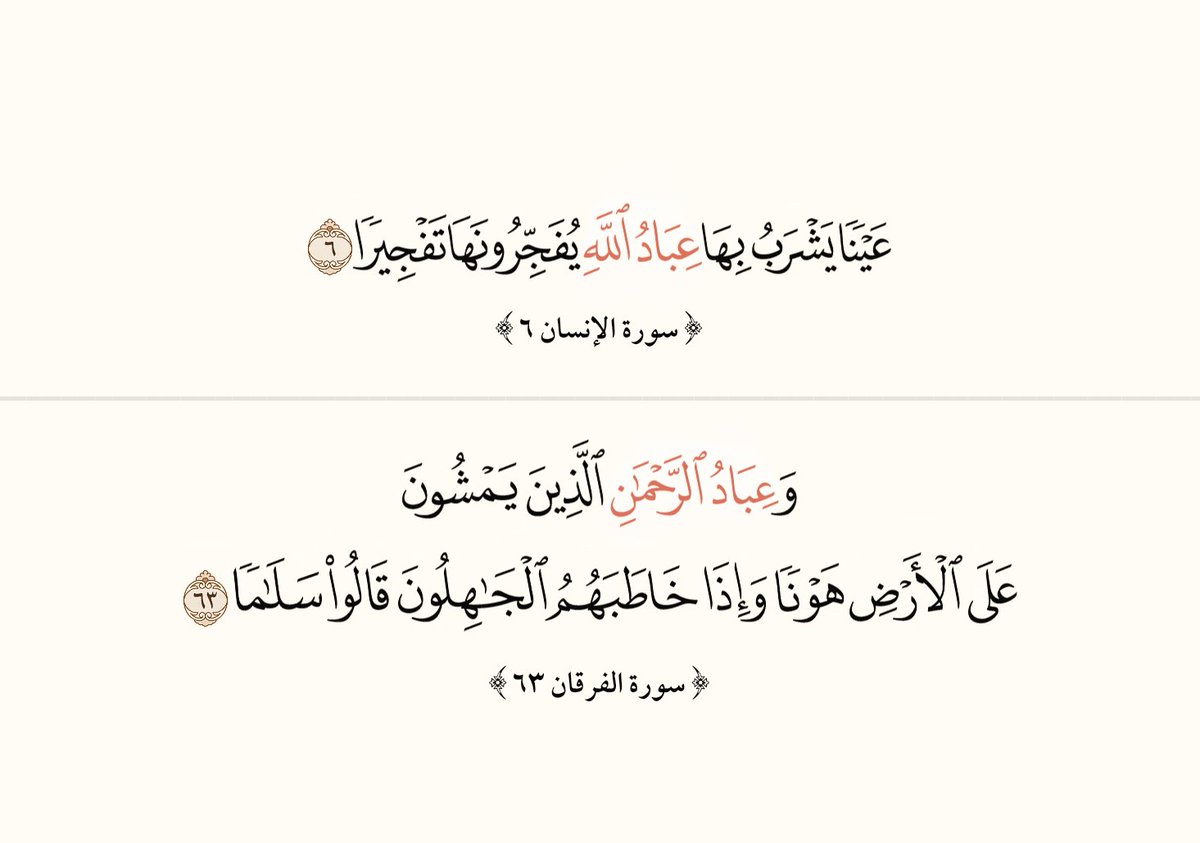 عَيْنًا يَشْرَبُ بِهَا عِبَادُ ٱللَّهِ يُفَجِّرُونَهَا تَفْجِيرًا ٦
﴿ سورة الإنسان ٦ ﴾
وَعِبَادُ ٱلرَّحْمَٰنِ ٱلَّذِينَ يَمْشُونَ
عَلَى ٱلْأَرْضِ هَوْنًا وَإِذَا خَاطَبَهُمُ ٱلْجَٰهِلُونَ قَالُوا۟ سَلَٰمًا ٦٣
﴿ سورة الفرقان ٦٣ ﴾